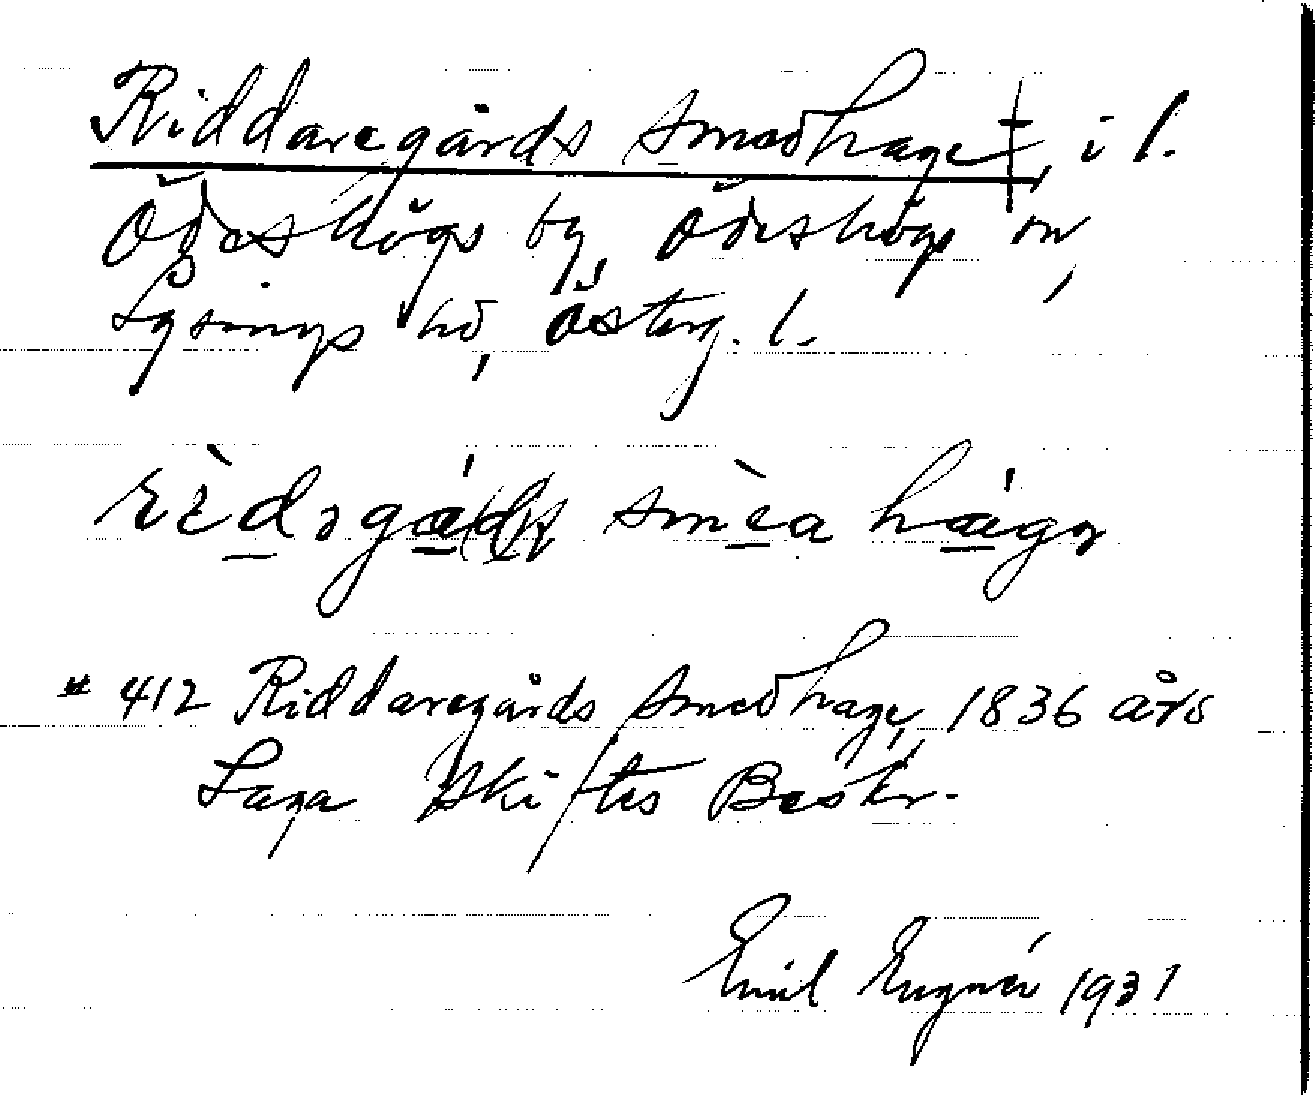 Riddaregårds smedhage ‡, i l.
Ödeshögs by, Ödeshögs sn,
Lysings hd, Österg. l.
rὲdəgá smὲa hágə
# 412 Riddaregårds smedhage, 1836 års
Laga Skiftes Beskr.
Emil 1931